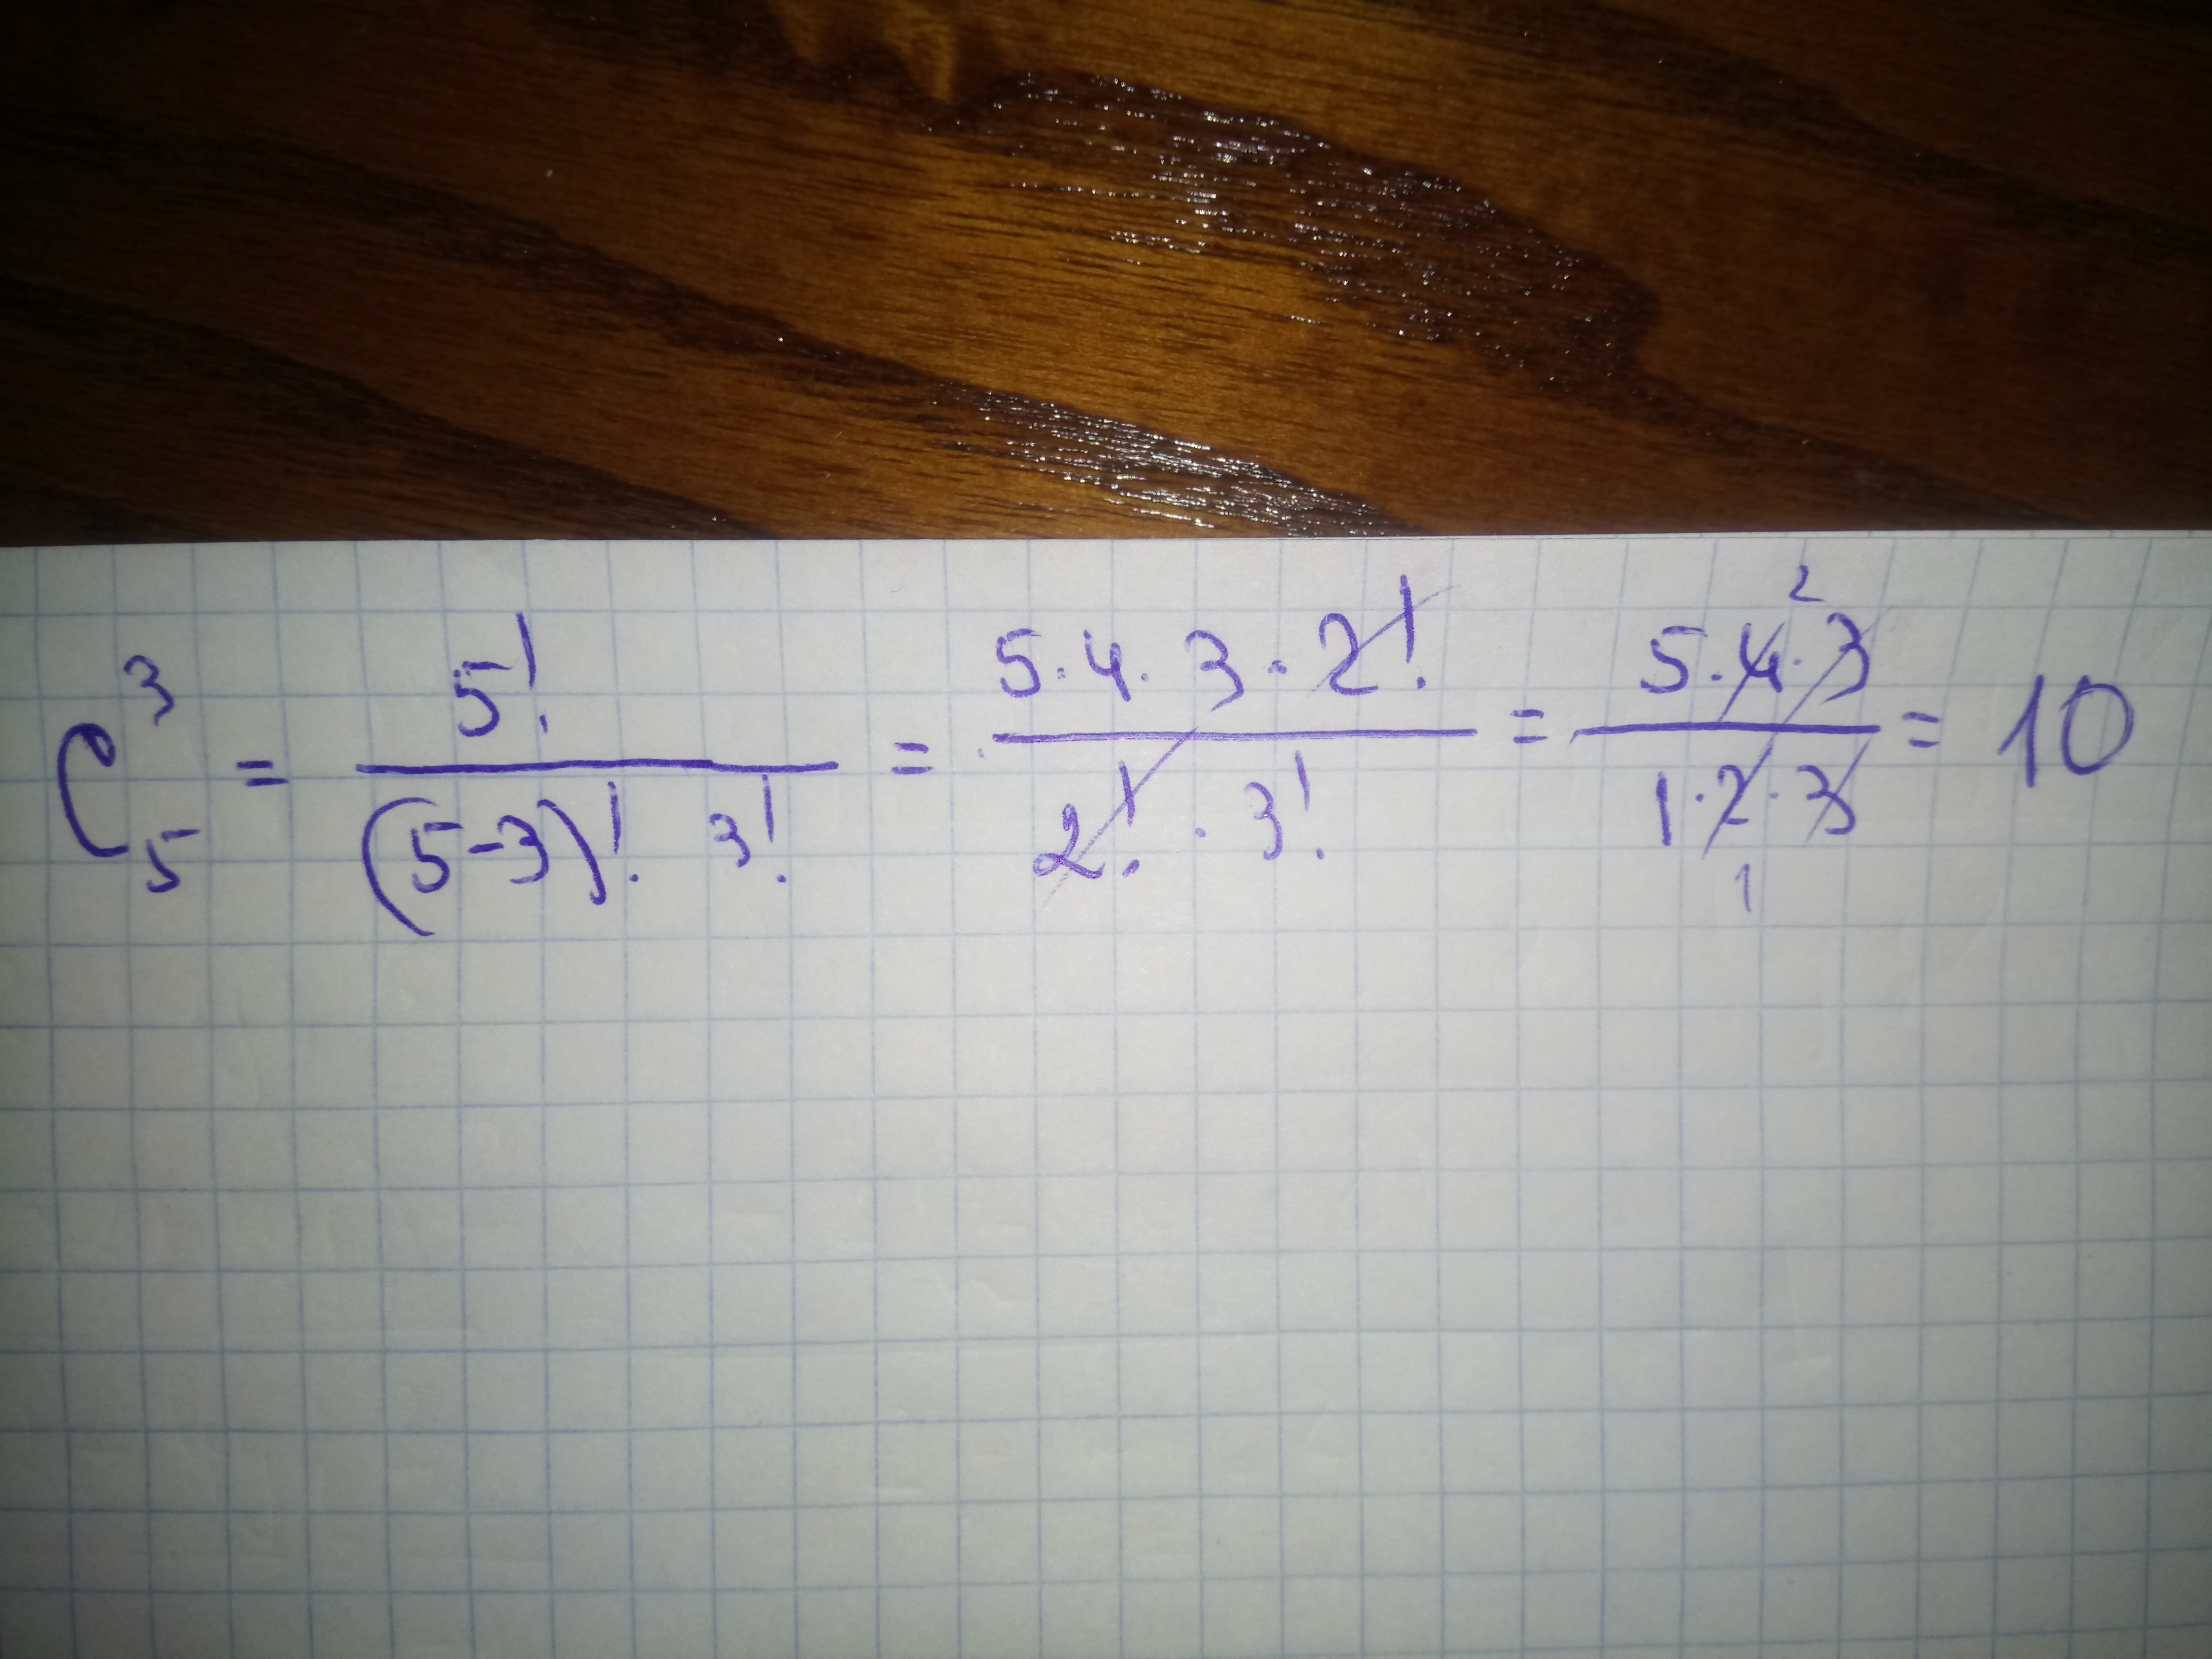 C₅³ = 5! / ((5-3)! 3!) = (5·4·3·2!) / (2!·3!) = (5·4²·3) / (1·2₁·3) = 10